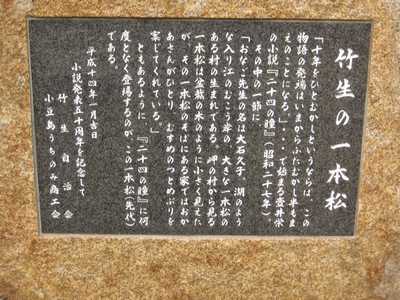 竹生の一本松
「十年をひとむかしというならば、この
物語の発端はいまからふたむかし半もま
えのことになる。」・・・で始まる壺井栄
の小説『二十四の瞳』（昭和二十七年）。
その中の一節に
「おなご先生の名は大石久子。湖のよう
な入り江のむこう岸の、大きな一本松の
ある村の生まれである。岬の村から見る
一本松は盆栽の木のように小さく見えた
が、その一本松のそばにある家ではおか
あさんがひとり、むすめのつとめぶりを
案じてくれている。」
ともあるように、『二十四の瞳』に何
度となく登場するのが、この一本松(先代)
である。
平成十四年一月吉日
小説発表五十周年を記念して
竹生自治会
小豆島うちのみ商工会